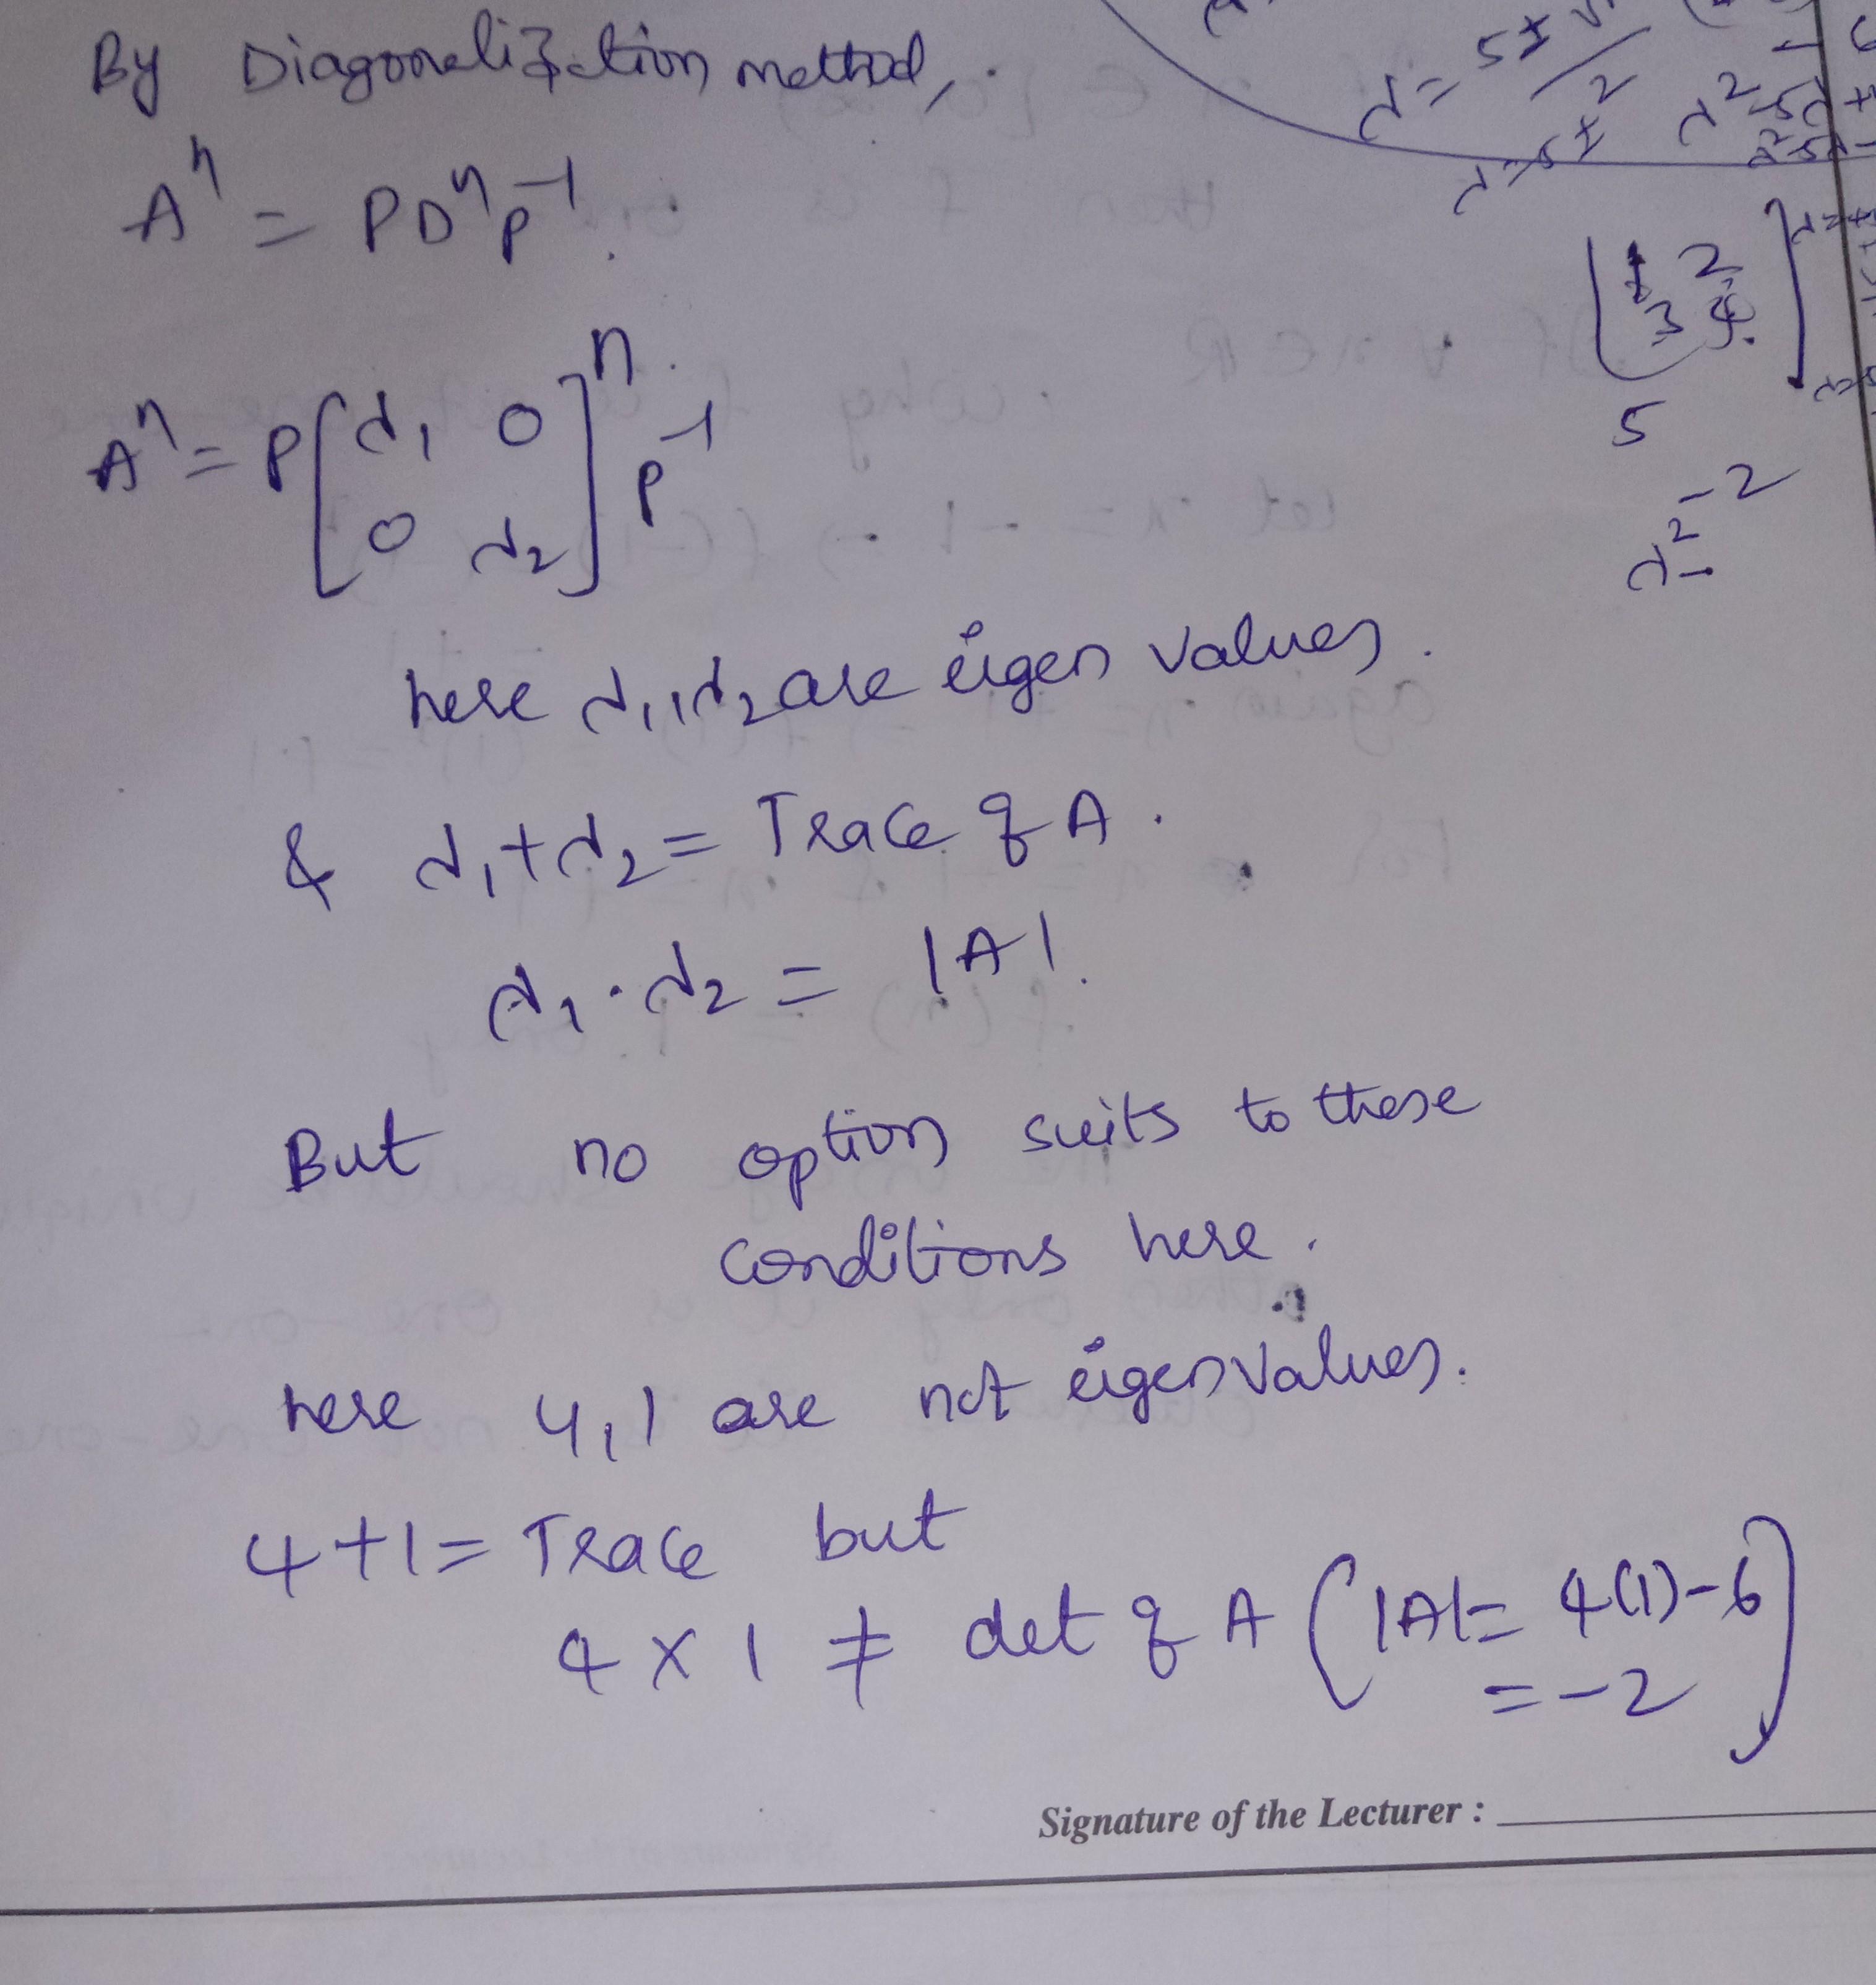 By Diagonalization method,
Aⁿ = PDⁿP⁻¹.
Aⁿ = P[λ₁ 0
0 λ₂]ⁿ P⁻¹
here λ₁,λ₂ are eigen values.
& λ₁+λ₂ = Trace of A.
λ₁·λ₂ = |A|.
But no option suits to these
conditions here.
here 4,1 are not eigen values.
4+1 = Trace but
4 × 1 ≠ det of A (|A| = 4(1)-6
= -2)
λ = 5±
2
[1 2
3 4]
5
-2
λ²-
Signature of the Lecturer :